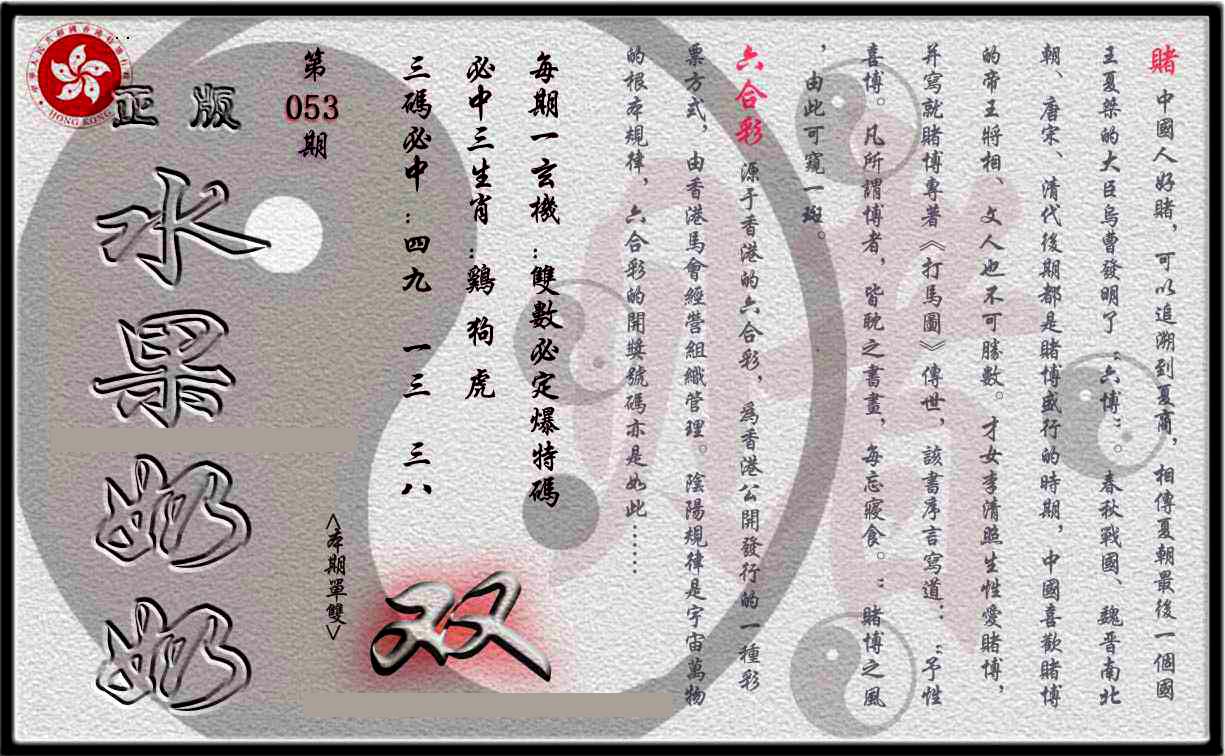 賭 中國人好賭，可以追溯到夏商，相傳夏朝最後一個國
王夏桀的大臣烏曹發明了“六博”。春秋戰國、魏晋南北
朝、唐宋、清代後期都是賭博盛行的時期，中國喜歡賭博
的帝王將相、文人也不可勝數。才女李清照生性愛賭博，
并寫就賭博專著《打馬圖》傳世，該書序言寫道：“予性
喜博。凡所謂博者，皆耽之書畫，每忘寢食。”賭博之風
，由此可窺一斑。
六合彩 源于香港的六合彩，爲香港公開發行的一種彩
票方式，由香港馬會經營組織管理。陰陽規律是宇宙萬物
的根本規律，六合彩的開獎號碼亦是如此……
每期一玄機：雙數必定爆特碼
必中三生肖：鷄 狗 虎
三碼必中：四九 一三 三八
第
053
期
<本期單雙>
双
正版
水果奶奶
HONG KONG